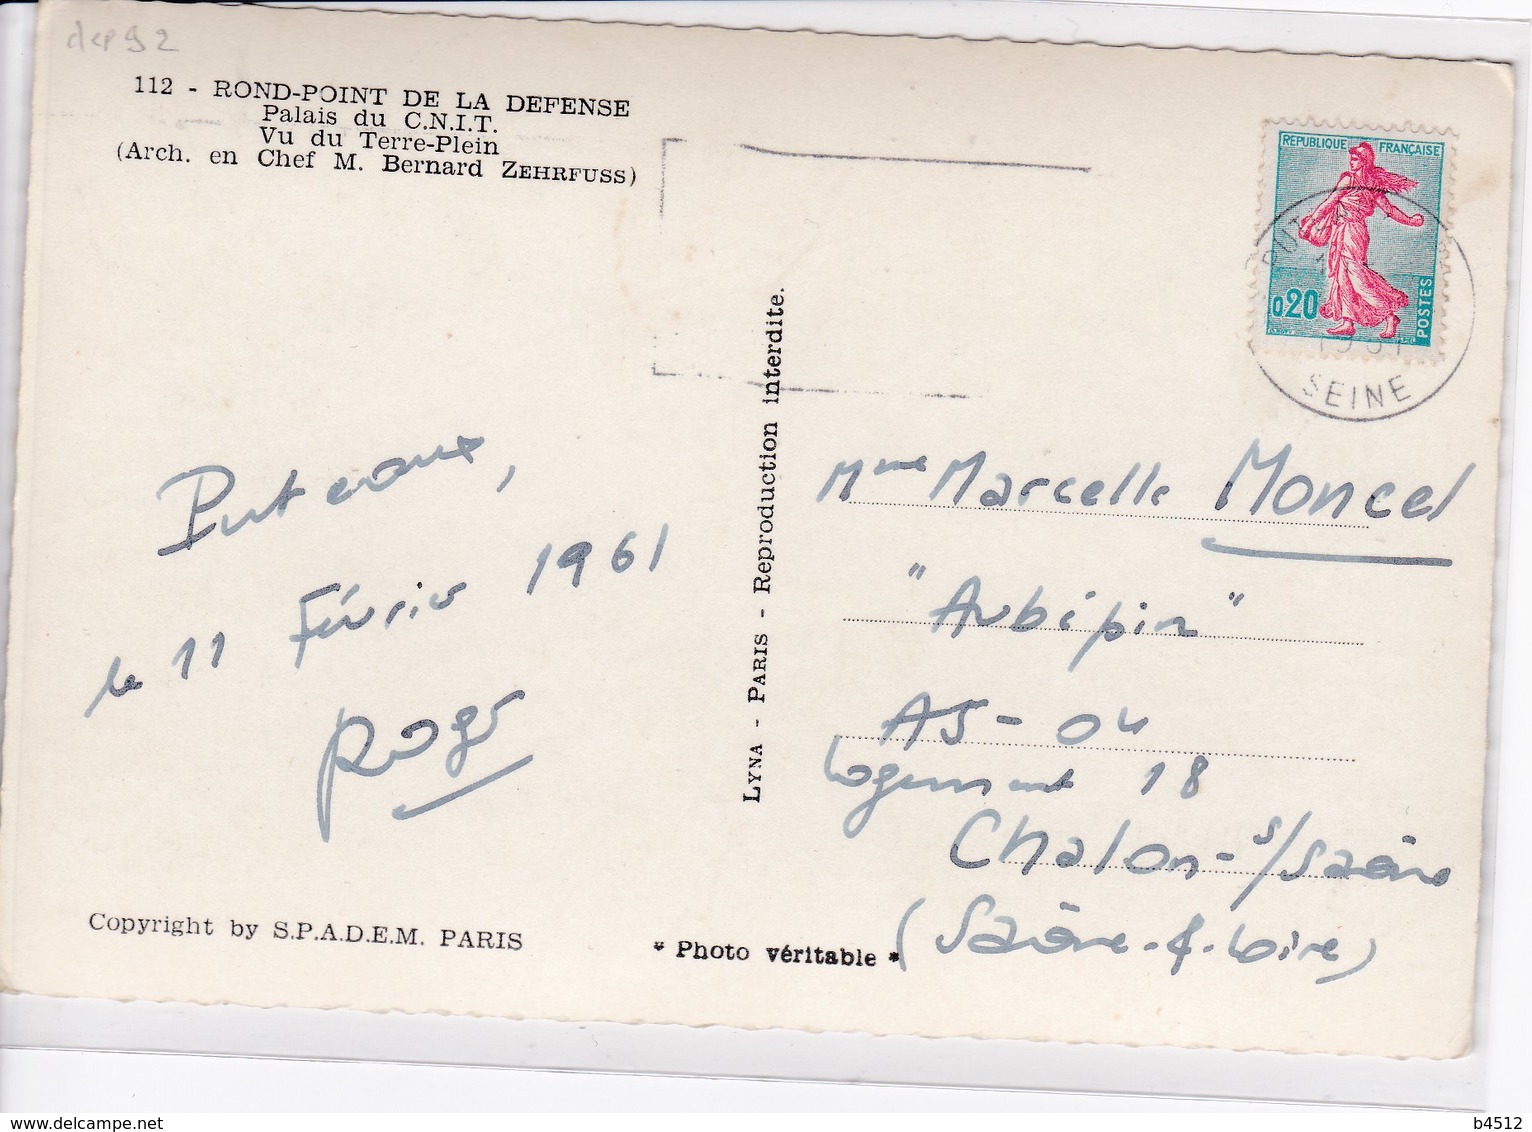 dep 92
112 - ROND-POINT DE LA DEFENSE
Palais du C.N.I.T.
Vu du Terre-Plein
(Arch. en Chef M. Bernard ZEHRFUSS)
REPUBLIQUE FRANÇAISE
0,20
POSTES
PUTEAUX
1961
SEINE
Puteaux,
le 11 Février 1961
Roger
LYNA - PARIS - Reproduction interdite.
Mme Marcelle Moncel
"Aubépin"
A5 - 04
Logement 18
Chalon-s/Saône
(Saône-&-Loire)
Copyright by S.P.A.D.E.M. PARIS
* Photo véritable *
www.delcampe.net
b4512